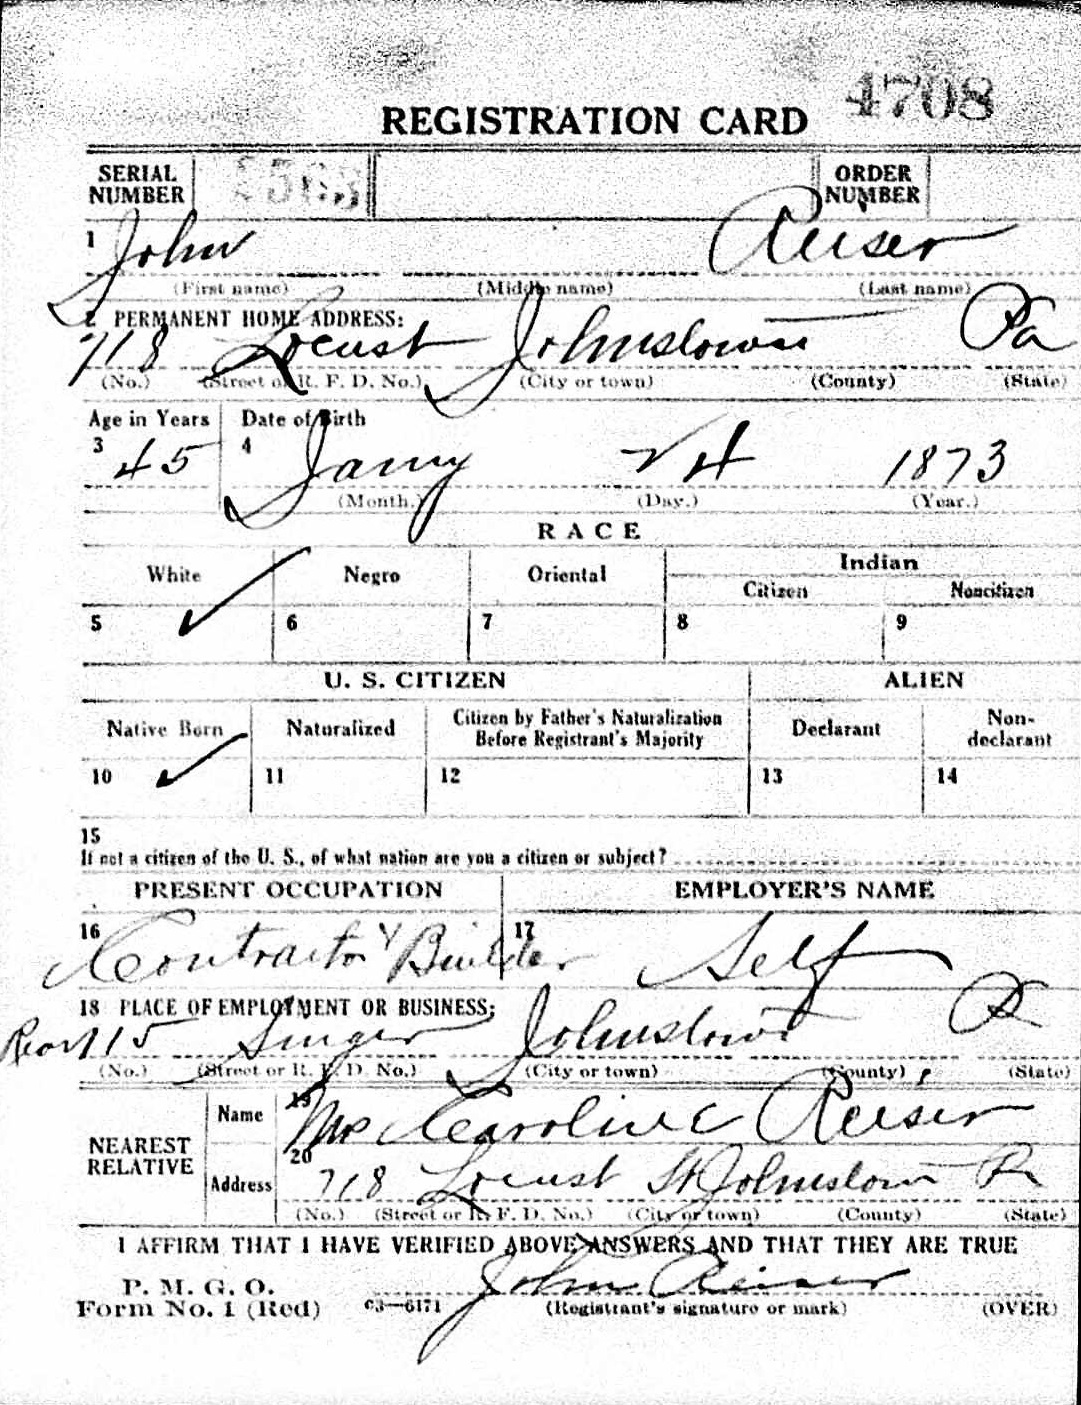 4708
REGISTRATION CARD
SERIAL NUMBER ORDER NUMBER
1 John Reiser
(First name) (Middle name) (Last name)
2 PERMANENT HOME ADDRESS:
718 Locust Johnstown Pa
(No.) (Street or R. F. D. No.) (City or town) (County) (State)
Age in Years Date of Birth
3 45 4 Jany 24 1873
(Month.) (Day.) (Year.)
RACE
White Negro Oriental Indian
Citizen Noncitizen
5 ✓ 6 7 8 9
U. S. CITIZEN ALIEN
Native Born Naturalized Citizen by Father's Naturalization Before Registrant's Majority Declarant Non-declarant
10 ✓ 11 12 13 14
15
If not a citizen of the U. S., of what nation are you a citizen or subject?
PRESENT OCCUPATION EMPLOYER'S NAME
16 Contractor & Builder 17 Self
18 PLACE OF EMPLOYMENT OR BUSINESS:
Rear 715 Singer Johnstown Pa
(No.) (Street or R. F. D. No.) (City or town) (County) (State)
NEAREST RELATIVE
Name 19 Mrs Caroline Reiser
Address 20 718 Locust St Johnstown Pa
(No.) (Street or R. F. D. No.) (City or town) (County) (State)
I AFFIRM THAT I HAVE VERIFIED ABOVE ANSWERS AND THAT THEY ARE TRUE
P. M. G. O.
Form No. 1 (Red) c3—6171 John Reiser
(Registrant's signature or mark) (OVER)